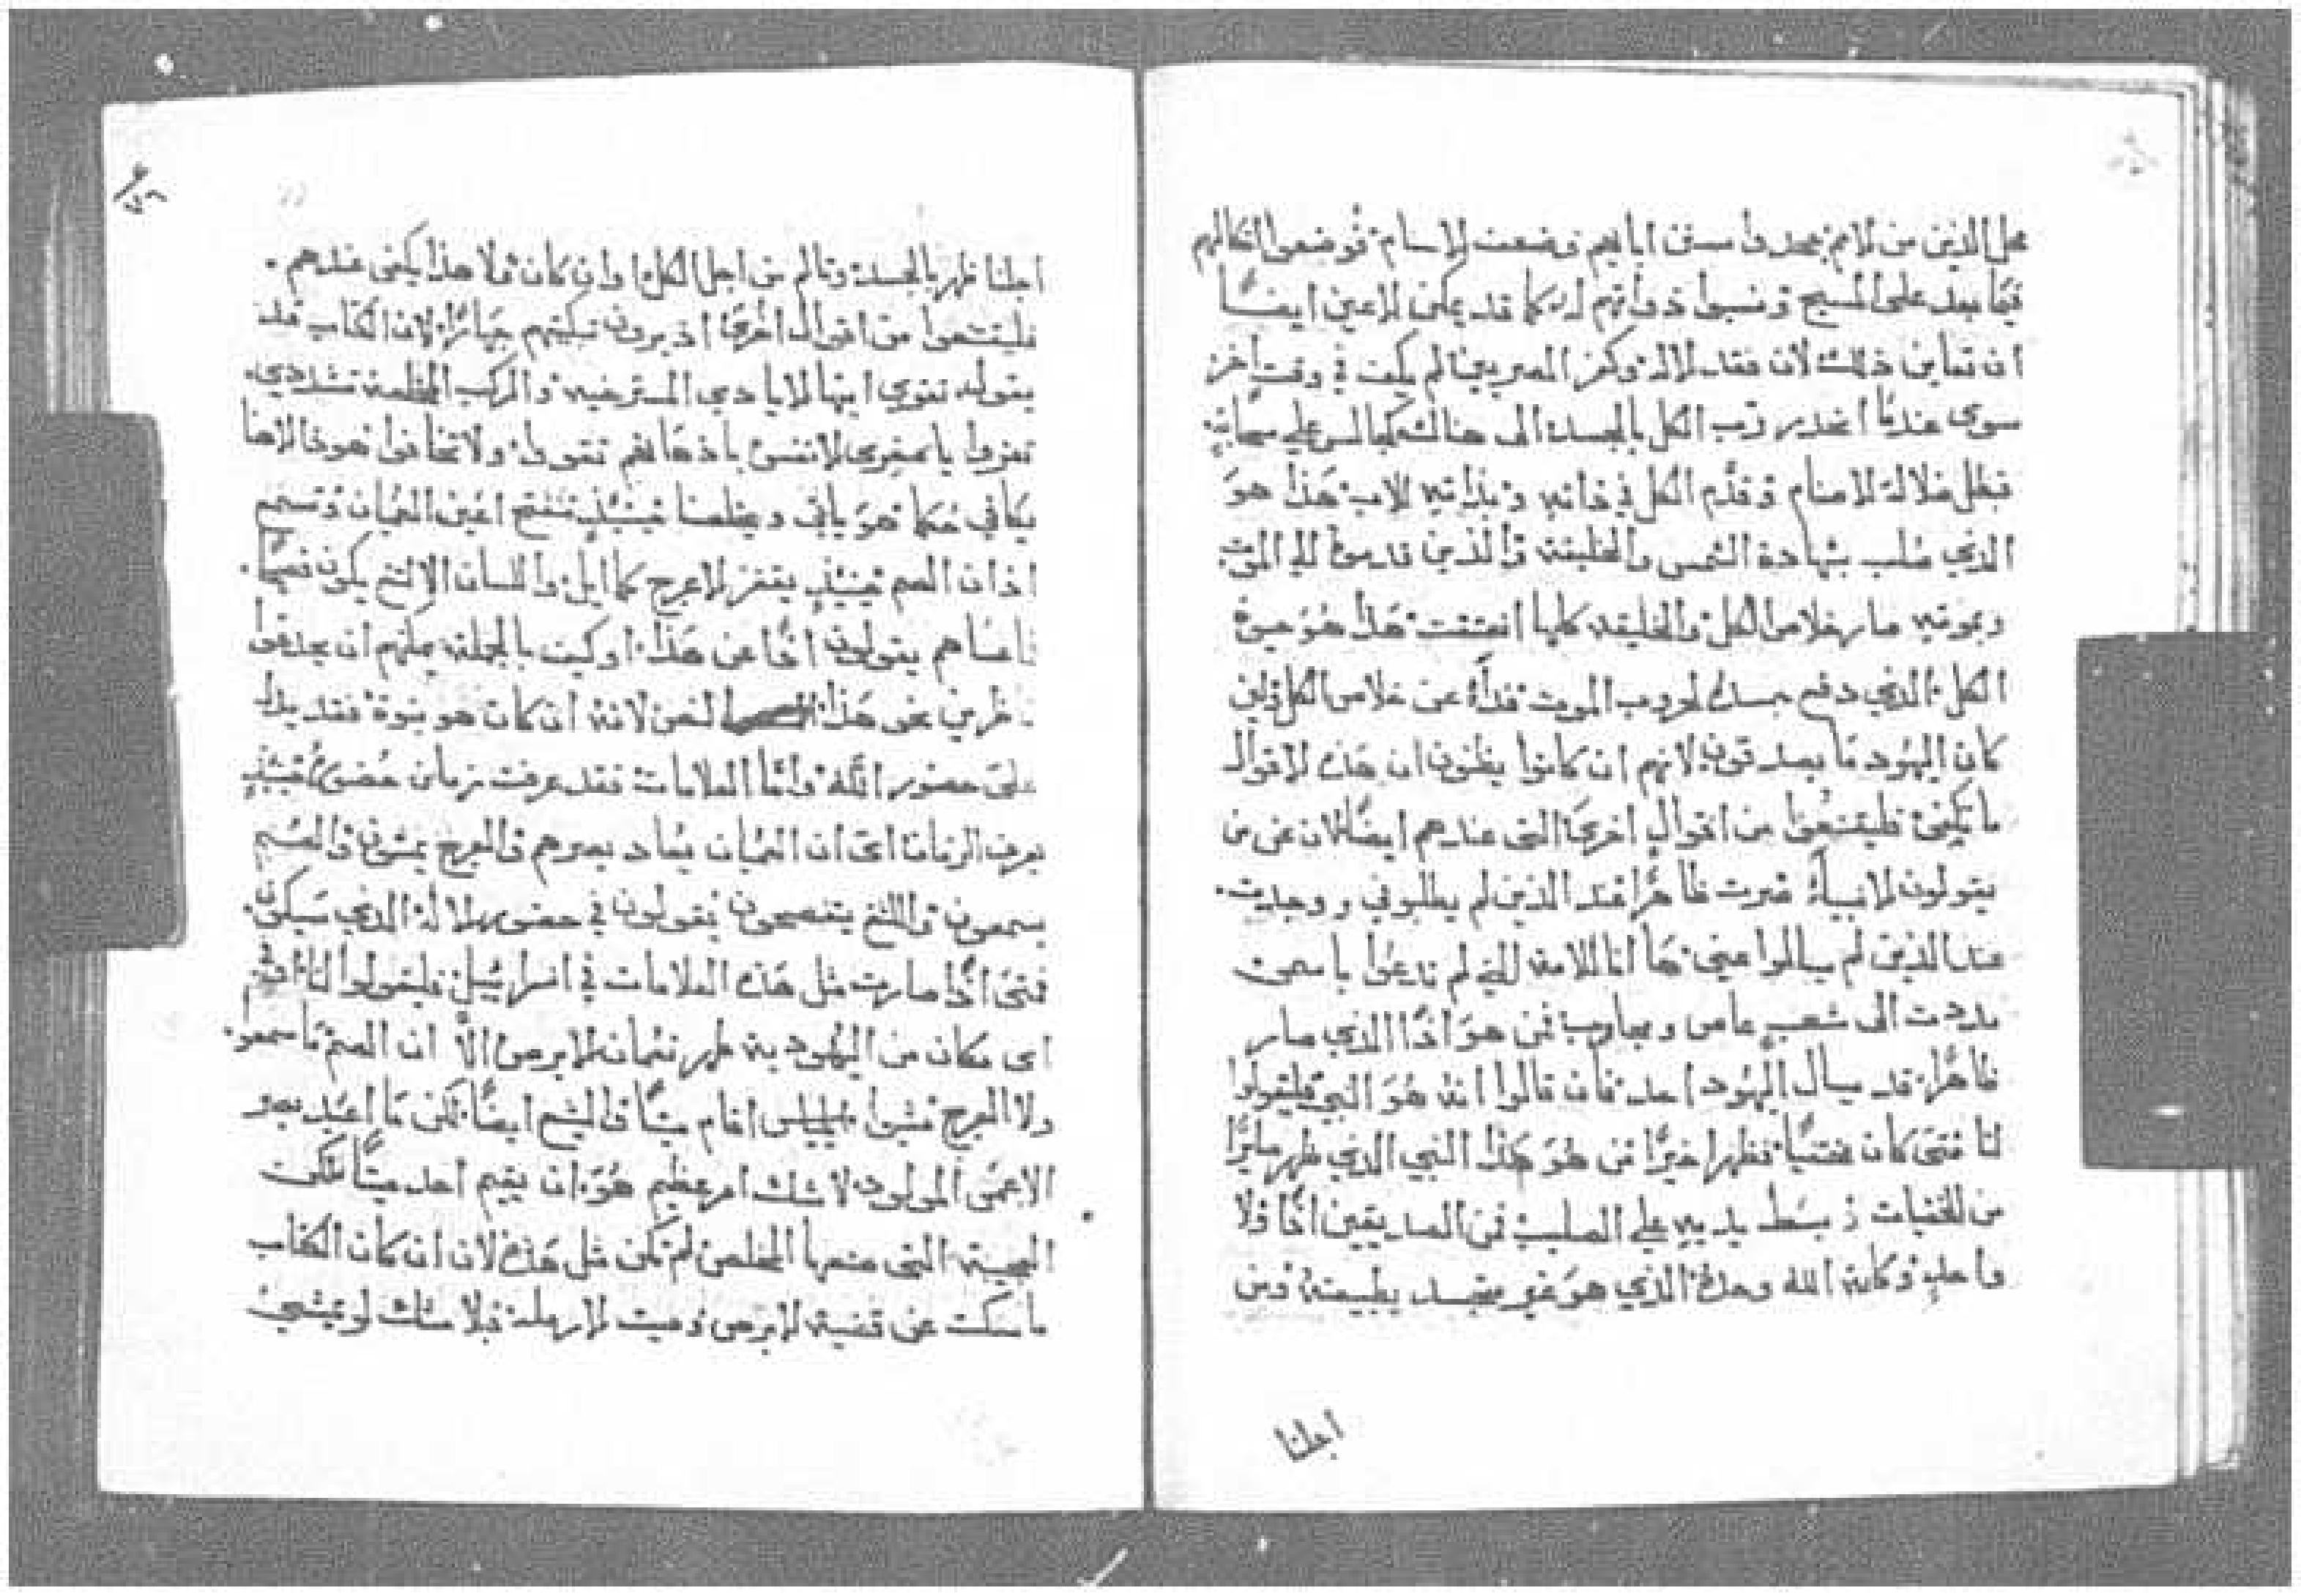 محل الذين من الامم يجحدوا سنن ابايهم وضعت الاسنام فوضعوا اتكالهم
فيما بعد على المسيح ونسبوا ذواتهم له كما قد يمكن للاعين ايضًا
ان تعاين ذلك لان فقد لالة وكفر المصريين لم يكف في وقت اخر
سوى عندما انحدر رب الكل بالجسد الى هنالك كجالس على سحابة
فبطل ضلالة الاصنام وقدم الكل في خاته وبذاته للاب هذا هو
الذي صلب بشهادة الشمس والخليقة والذين قدموا له الموت
وبموته صار خلاص الكل والخليقه كلها انعتقت هذا هو حيوة
الكل الذي دفع جسده لموت فدآء عن خلاص الكل وان
كان اليهود ما يصدقون لانهم ان كانوا يظنون ان هذه الاقوال
ما تكفي فليقتنعوا من اقوال اخرى التي عندهم ايضًا لان عن من
يقولون الانبيآء صرت ظاهرًا عند الذين لم يطلبوني ووجدت
عند الذين لم يسالوا عني ها انا للامة التي لم تدعوا باسمي
مددت الى شعب عاص ومجاوب فمن هو اذًا الذي صار
ظاهرًا قد يسال اليهود احد فان قالوا انه هو النبي فليقولوا
لنا متى كان مختفيًا فظهر اخيرًا فمن هو هذا النبي الذي ظهر صايرًا
من الخفيات وبسط يديه على الصليب فمن الصديقين اذًا فلا
واحد وكلمة الله وحده الذي هو غير متجسد بطبيعته ومن
اجلنا
اجلنا ظهر بالجسد وتالم من اجل الكل وان كان ولا هذا يكفي عندهم
فليقتنعوا من اقوال اخرى اذ يرون تبكيتهم جهارًا لان الكتاب قد
يقول تقوي ايتها الايادي المسترخيه والركب المخلعة تشددي
تعزوا يا صغيري الانفس باذهانهم تقووا ولا تخافوا هوذا الاهنا
يكافي حكمًا هو ياتي ويخلصنا حينيذ تنفتح اعين العميان وتسمع
اذان الصم حينيذ يقفز الاعرج كالايل واللسان الالتغ يكون فصيحًا
ما عساهم يقولون اذًا عن هذا او كيف بالجملة يمكنهم ان يجدفوا
ناظرين نحو هذا الفحص لانه ان كان هو نبوة فقد يدل
على حضور الله واما العلامات فقد عرفت زمان حضوره حينيذ
يعرف الزمان اى ان العميان يعاد بصرهم والعرج يمشون والصم
يسمعون والالتغ يتفصحون يقولون في حضور الاله الذي سيكون
فمتى اذًا صارت مثل هذه العلامات في اسراييل فليقولوا لنا او في
اى مكان من اليهودية طهر نعمان الابرص الآ ان الصم ما سمعوا
ولا العرج مشوا ايلياس اقام ميتًا واليشع ايضًا لكن ما اعيد بصر
الاعمى المولود لا شك امر عظيم هو ان يقيم احد ميتًا لكن
العجيبة التي صنعها المخلص لم تكن مثل هذه لان ان كان الكتاب
ما سكت عن قضية الابرص وميت الارملة فبلا شك لو يمشي